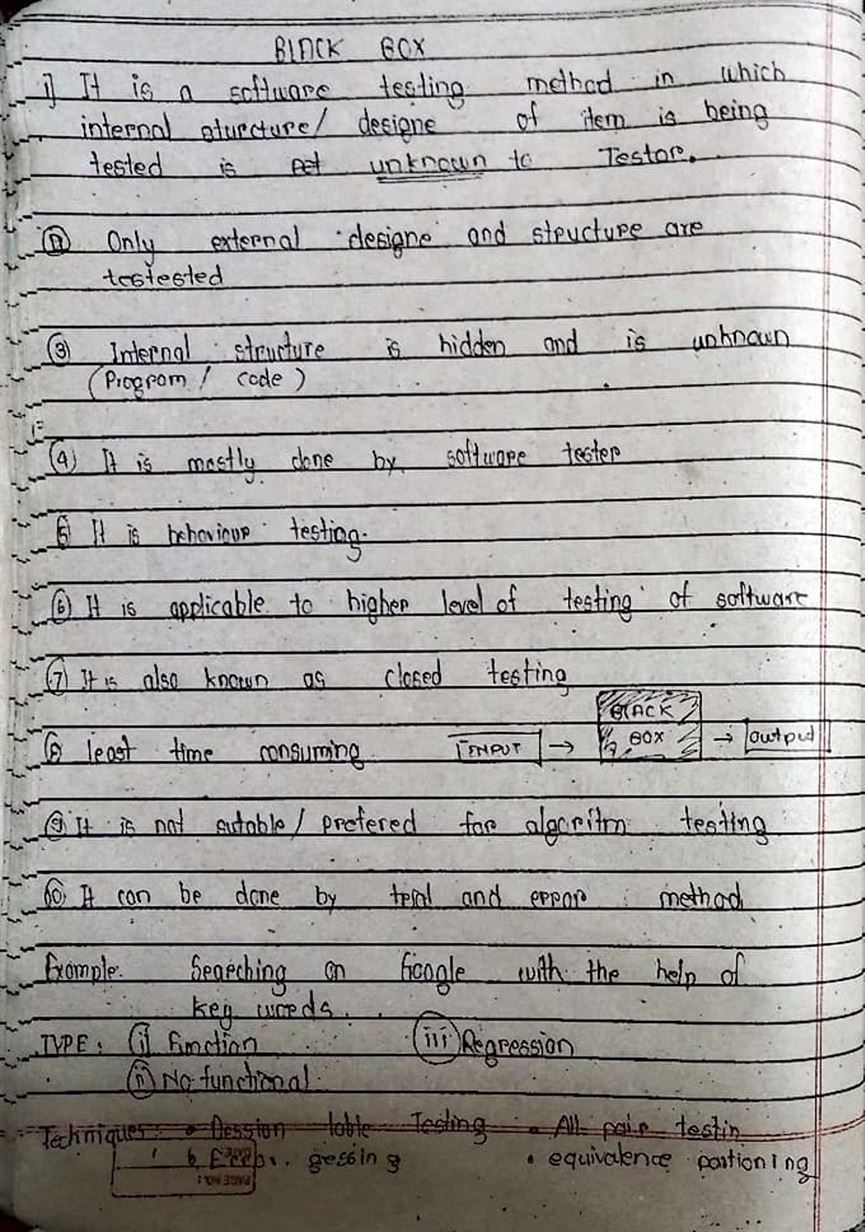 BLACK BOX
i] It is a software testing method in which
internal sturcture/ designe of item is being
tested is unknown to Testor.
(ii) Only external designe and structure are
testested
(3) Internal structure is hidden and is unknown
(Program / code)
(4) It is mostly done by software tester
(5) It is behaviour testing.
(6) It is applicable to higher level of testing of software
(7) It is also known as closed testing
(8) least time consuming INPUT → BLACK BOX → output
(9) It is not sutable/ prefered for algoritm testing
(10) It can be done by trial and error method
Example: Searching on Google with the help of
key words.
TYPE: (i) Function (iii) Regression
(ii) No functional
Techniques • Dession table Testing • All pair testin
• Error. gessing • equivalence partioning
PAGE NO.: